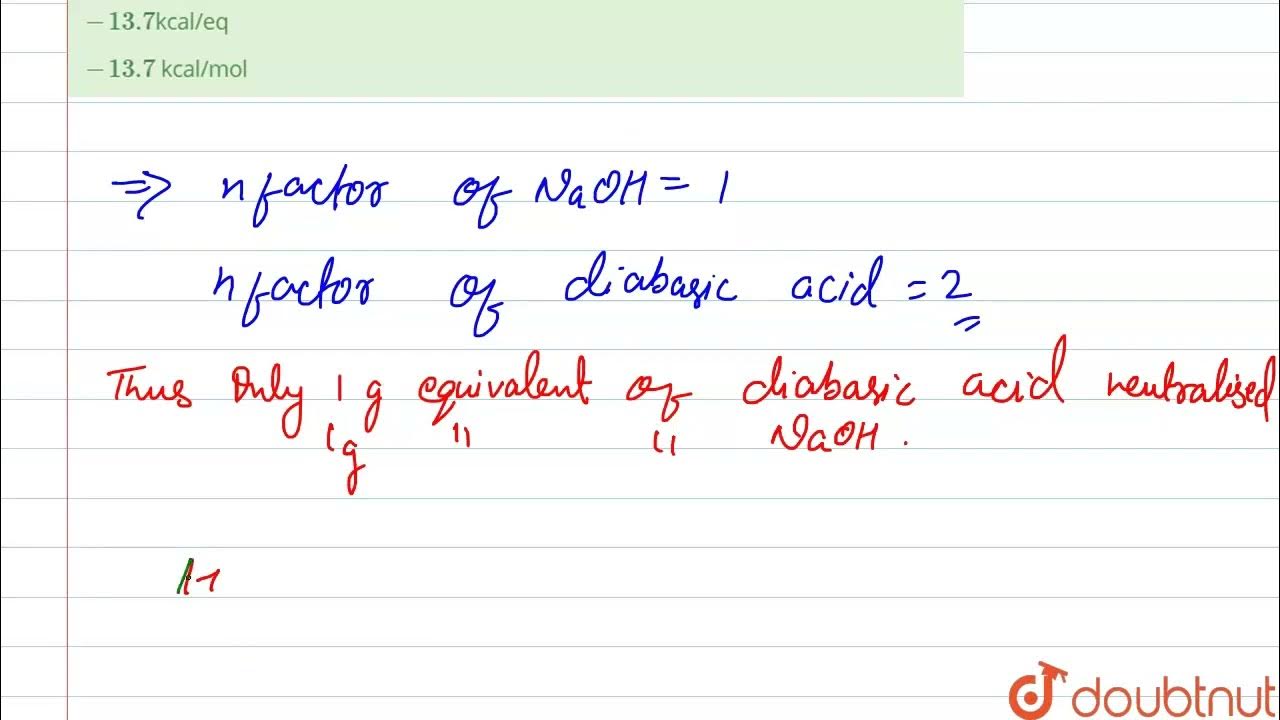 −13.7kcal/eq
−13.7 kcal/mol
⇒ n factor of NaOH = 1
n factor of diabasic acid = 2
Thus Only 1 g equivalent of diabasic acid neutralized
1g " " NaOH.
doubtnut